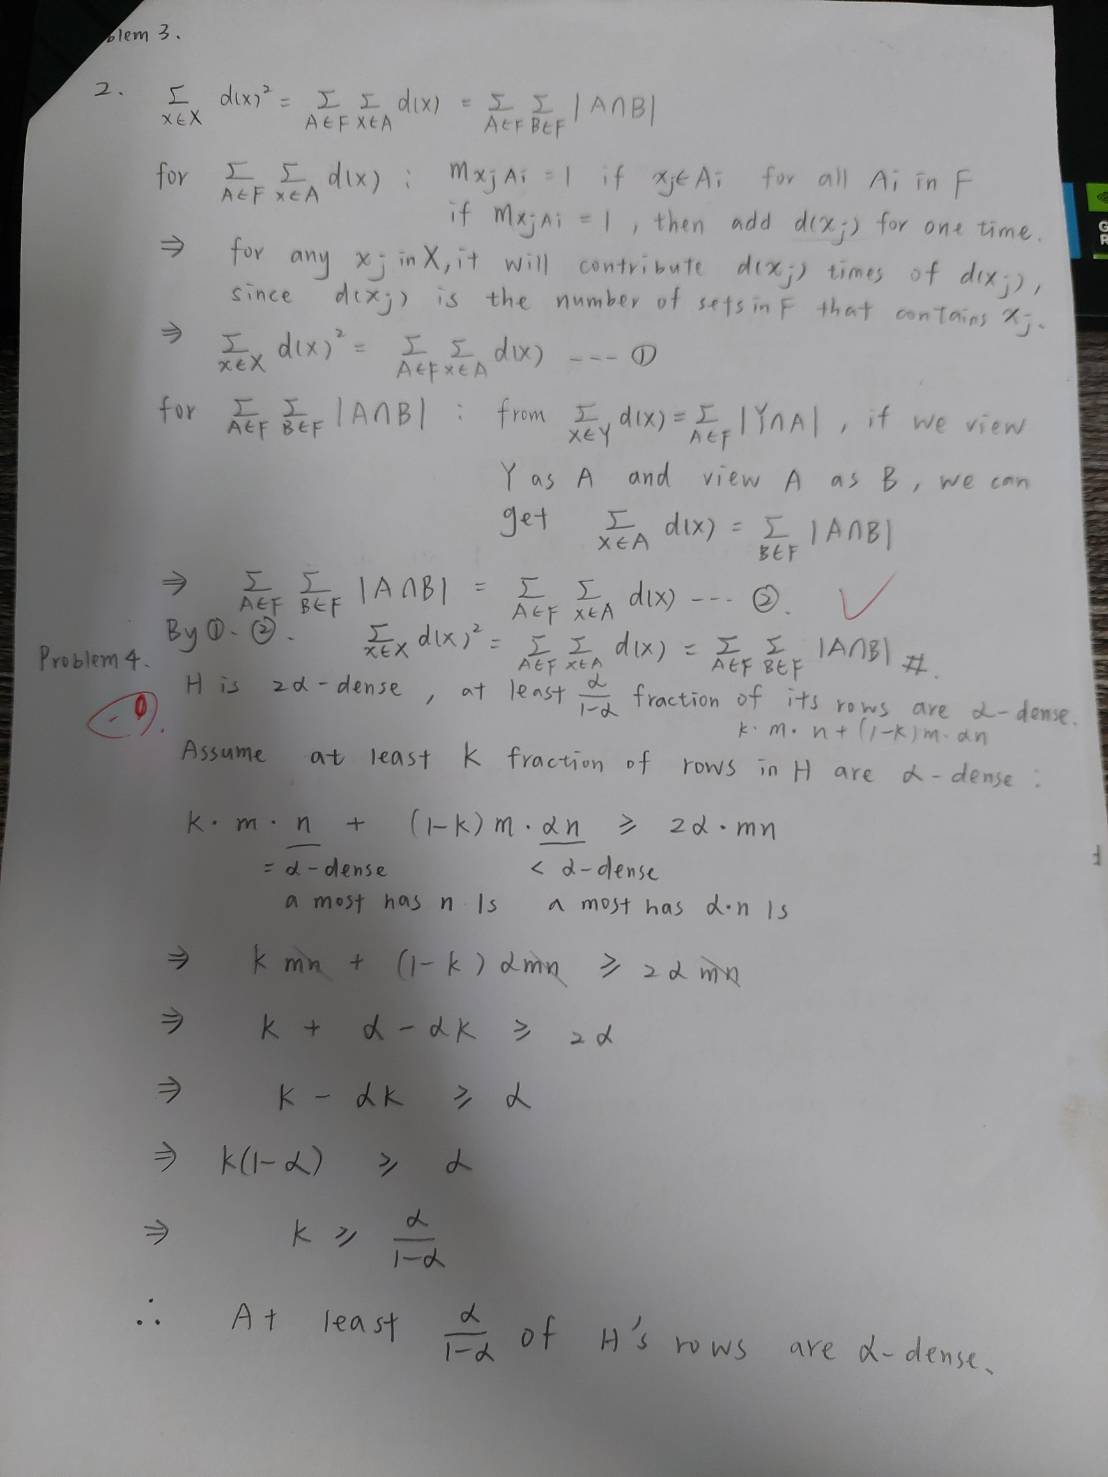 blem 3.
2. Σ_{x∈X} d(x)² = Σ_{A∈F} Σ_{x∈A} d(x) = Σ_{A∈F} Σ_{B∈F} |A∩B|
for Σ_{A∈F} Σ_{x∈A} d(x) : m_{xjAi} = 1 if xj∈Ai for all Ai in F
if m_{xjAi} = 1, then add d(xj) for one time.
⇒ for any xj in X, it will contribute d(xj) times of d(xj),
since d(xj) is the number of sets in F that contains xj.
⇒ Σ_{x∈X} d(x)² = Σ_{A∈F} Σ_{x∈A} d(x) --- ①
for Σ_{A∈F} Σ_{B∈F} |A∩B| : from Σ_{x∈Y} d(x) = Σ_{A∈F} |Y∩A|, if we view
Y as A and view A as B, we can
get Σ_{x∈A} d(x) = Σ_{B∈F} |A∩B|
⇒ Σ_{A∈F} Σ_{B∈F} |A∩B| = Σ_{A∈F} Σ_{x∈A} d(x) --- ②.
By ①、②. Σ_{x∈X} d(x)² = Σ_{A∈F} Σ_{x∈A} d(x) = Σ_{A∈F} Σ_{B∈F} |A∩B| #.
Problem 4.
-0.
H is 2α-dense, at least α/(1-α) fraction of its rows are α-dense.
k·m·n + (1-k)m·αn
Assume at least k fraction of rows in H are α-dense :
k·m·n + (1-k)m·αn ≥ 2α·mn
= α-dense < α-dense
a most has n 1s a most has α·n 1s
⇒ k mn + (1-k) αmn ≥ 2α mn
⇒ k + α - αk ≥ 2α
⇒ k - αk ≥ α
⇒ k(1-α) ≥ α
⇒ k ≥ α/(1-α)
∴ At least α/(1-α) of H's rows are α-dense.